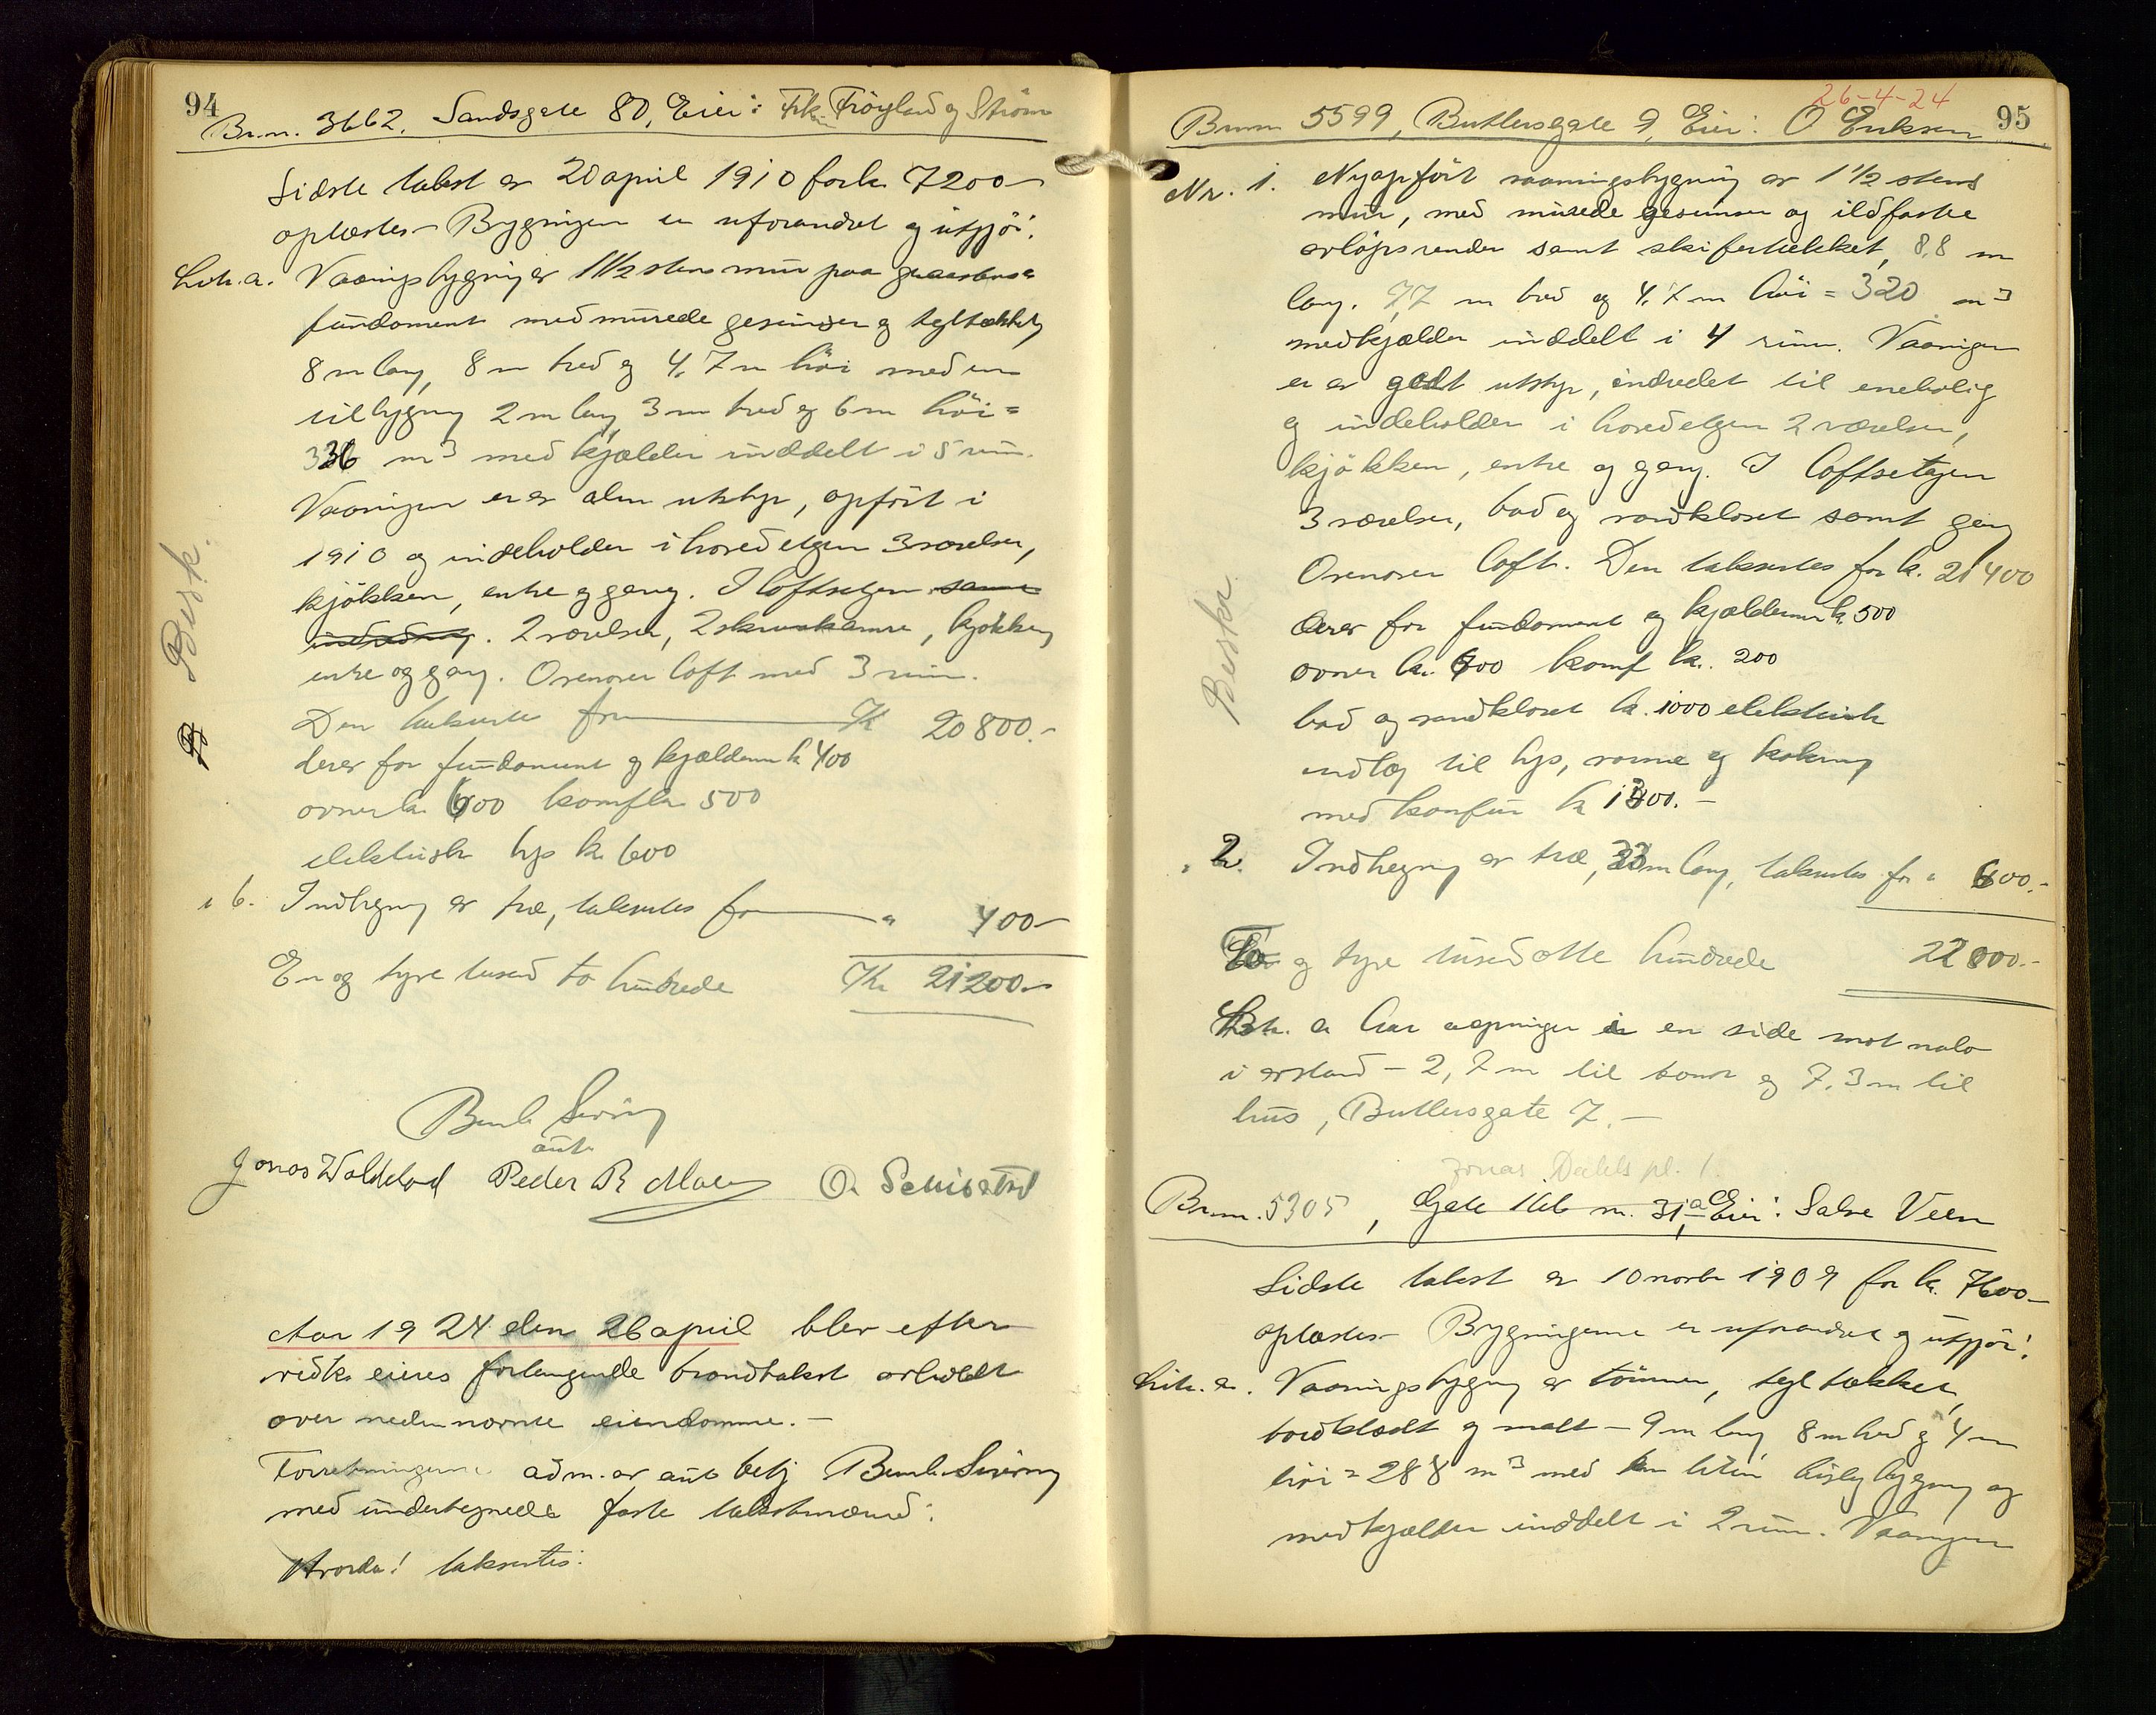 94
Br.nr. 3662, Sandsgate 80, Eier: Frk. Fröyland og Ström
Sidste takst er 20 april 1910 for kr 7200-
oplæstes - Bygningen er uforandret og utgjör:
Litr. a. Vaaningsbygning er 1 1/2 stens mur paa graastens
fundament med murede gesimser og tegltækket,
8 m lang, 8 m bred og 4,7 m höi med en
tilbygning 2 m lang, 3 m bred og 6 m höi =
336 m3 med kjælder inddelt i 5 rum.
Vaaningen er av alm utstyr, opfört i
1910 og indeholder i hovedetgen 3 værelser,
kjökken, entre og gang. I loftsetgen samme
indredning. 2 værelser, 2 skraakamre, kjökken,
entre og gang. Ovenover loft med 3 rum.
Den takseres for Kr 20800.-
derav for fundament og kjælderrum kr 400
ovner kr 600 komf kr 500
elektrisk lys kr 600
" b. Indhegning av træ, takseres for " 400-
En og tyve tusend to hundrede Kr 21200.-
Berk.
Bernh. Severing
aut.
Jonas Waldeland Peder R Moen O. Schibsted
Aar 1924 den 26 april blev efter
vedk. eieres forlangende brandtakst avholdt
over nedennævnte eiendomme. -
Forretningerne adm. av aut betj Bernh. Severing
med undertegnede faste takstmænd:
Hvorda! taksertes:
26-4-24
95
Br.nr 5599, Butlersgate 9, Eier: O Eriksen
Nr. 1. Nyopfört vaaningsbygning av 1 1/2 stens
mur, med murede gesimser og ildfaste
avlöpsrender samt skifertækket, 8,8 m
lang, 7,7 m bred og 4,7 m höi = 320 m3
med kjælder inddelt i 4 rum. Vaaningen
er av godt utstyr, indredet til enebolig
og indeholder i hovedetgen 2 værelser,
kjökken, entre og gang. I loftsetagen
3 værelser, bad og vandkloset samt gang
Ovenover loft. Den takseres for kr. 21400
derav for fundament og kjælderrum kr. 500
ovner kr. 600 komf kr. 200
bad og vandkloset kr. 1000 elektrisk
indlæg til lys, varme og kokning
med komfur kr 1300.-
Beskr.
" 2. Indhegning av træ, 33 m lang, takseres for " 600.-
To og tyve tusend otte hundrede 22800.-
Litr. a har aapninger i en side mot nabo
i avstand - 2,7 m til tomt og 7,3 m til
hus, Butlersgate 7. -
Jonas Dahls pl. 1.
Br.nr. 5305, Gate 166 nr. 31a Eier: Salve Veen
Sidste takst er 10 novbr 1909 for kr. 7600-
oplæstes - Bygningerne er uforandret og utgjör:
Litr. a. Vaaningsbygning av tömmer, tegltækket,
bordklædt og malt - 9 m lang 8 m bred og 4 m
höi = 288 m3 med en liten bislagbygning og
med kjælder inddelt i 2 rum. Vaaningen